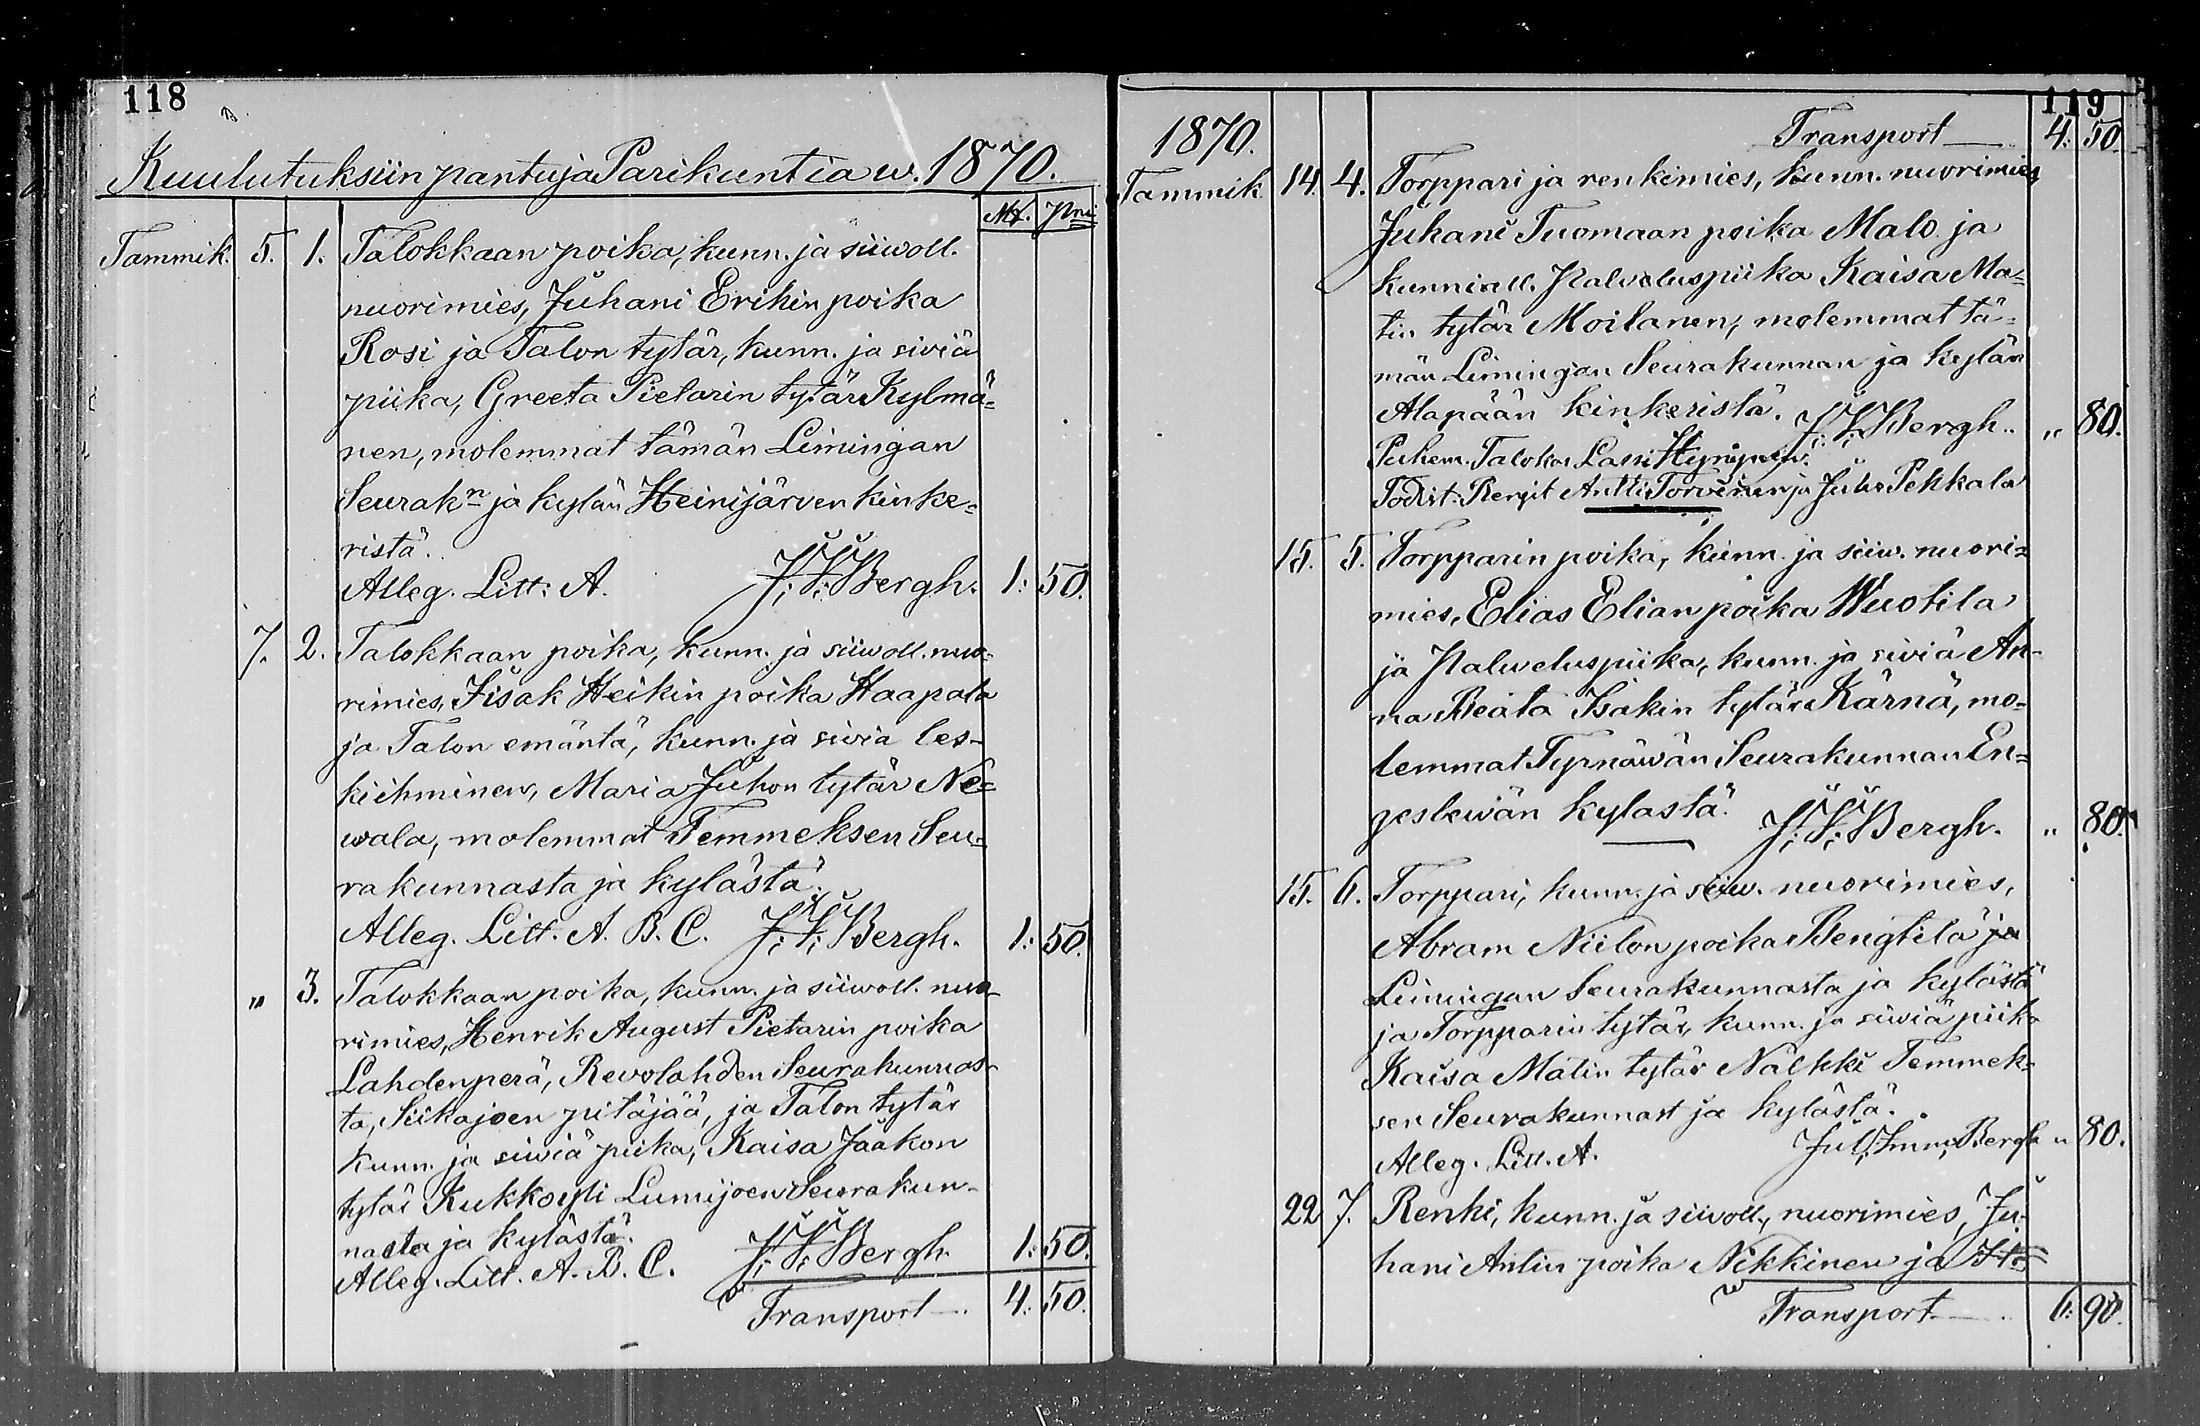 118
Kuulutuksiin pantuja Parikuntia w. 1870.
Mk. Pni
Tammik. 5. 1. Talokkaan poika, kunn. ja siiwoll.
nuorimies, Juhani Erikin poika
Rosi ja Talon tytär, kunn. ja siviä
piika, Greeta Pietarin tytär Kylmä-
nen, molemmat tämän Limingan
Seurakn ja kylän Heinijärven kinke-
ristä.
Alleg. Litt: A. J. I. Bergh. 1: 50.
7. 2. Talokkaan poika, kunn. ja siiwoll. nuo-
rimies, Iisak Heikin poika Haapala
ja Talon emäntä, kunn. ja siviä les-
kiihminen, Maria Juhon tytär Ne-
wala, molemmat Temmeksen Seu-
rakunnasta ja kylästä.
Alleg. Litt. A. B. C. J. I. Bergh. 1: 50.
" 3. Talokkaan poika, kunn. ja siiwoll. nuo-
rimies, Henrik August Pietarin poika
Lahdenperä, Revolahden Seurakunnas-
ta, Siikajoen pitäjää, ja Talon tytär
kunn. ja siiviä piika, Kaisa Jaakon
tytär Kukkoyli Lumijoen Seurakun-
nasta ja kylästä.
Alleg. Litt. A. B. C. J. I. Bergh. 1: 50.
Transport — 4: 50.
119
1870. Transport — 4: 50.
Tammik 14. 4. Torppari ja renkimies, kunn. nuorimies
Juhani Tuomaan poika Malo ja
kunniall. Palveluspiika Kaisa Ma-
tin tytär Moilanen, molemmat tä-
män Limingan Seurakunnan ja kylän
Alapään kinkeristä. J. I. Bergh. " 80.
Puhem. Talokas Lassi Hynynen.
Todist. Rengit Antti Torvinen ja Juho Pehkala
15. 5. Torpparin poika, kunn. ja siiw. nuori-
mies, Elias Elian poika Wuotila
ja Palweluspiika, kunn. ja siviä An-
na Beata Isakin tytär Kärnä, mo-
lemmat Tyrnäwän Seurakunnan En-
geslewän kylästä. J. I. Bergh. " 80.
15. 6. Torppari, kunn. ja siiw. nuorimies,
Abram Niilon poika Bengtilä ja
Limingan Seurakunnasta ja kylästä
ja Torpparin tytär, kunn. ja siiwiä piika
Kaisa Matin tytär Nälkki Temmek-
sen Seurakunnast ja kylästä.
Alleg. Litt. A. Jul. Imm. Bergh " 80.
22 7. Renki, kunn. ja siiwoll., nuorimies, Ju-
hani Antin poika Nikkinen ja
Transport — 6: 90.